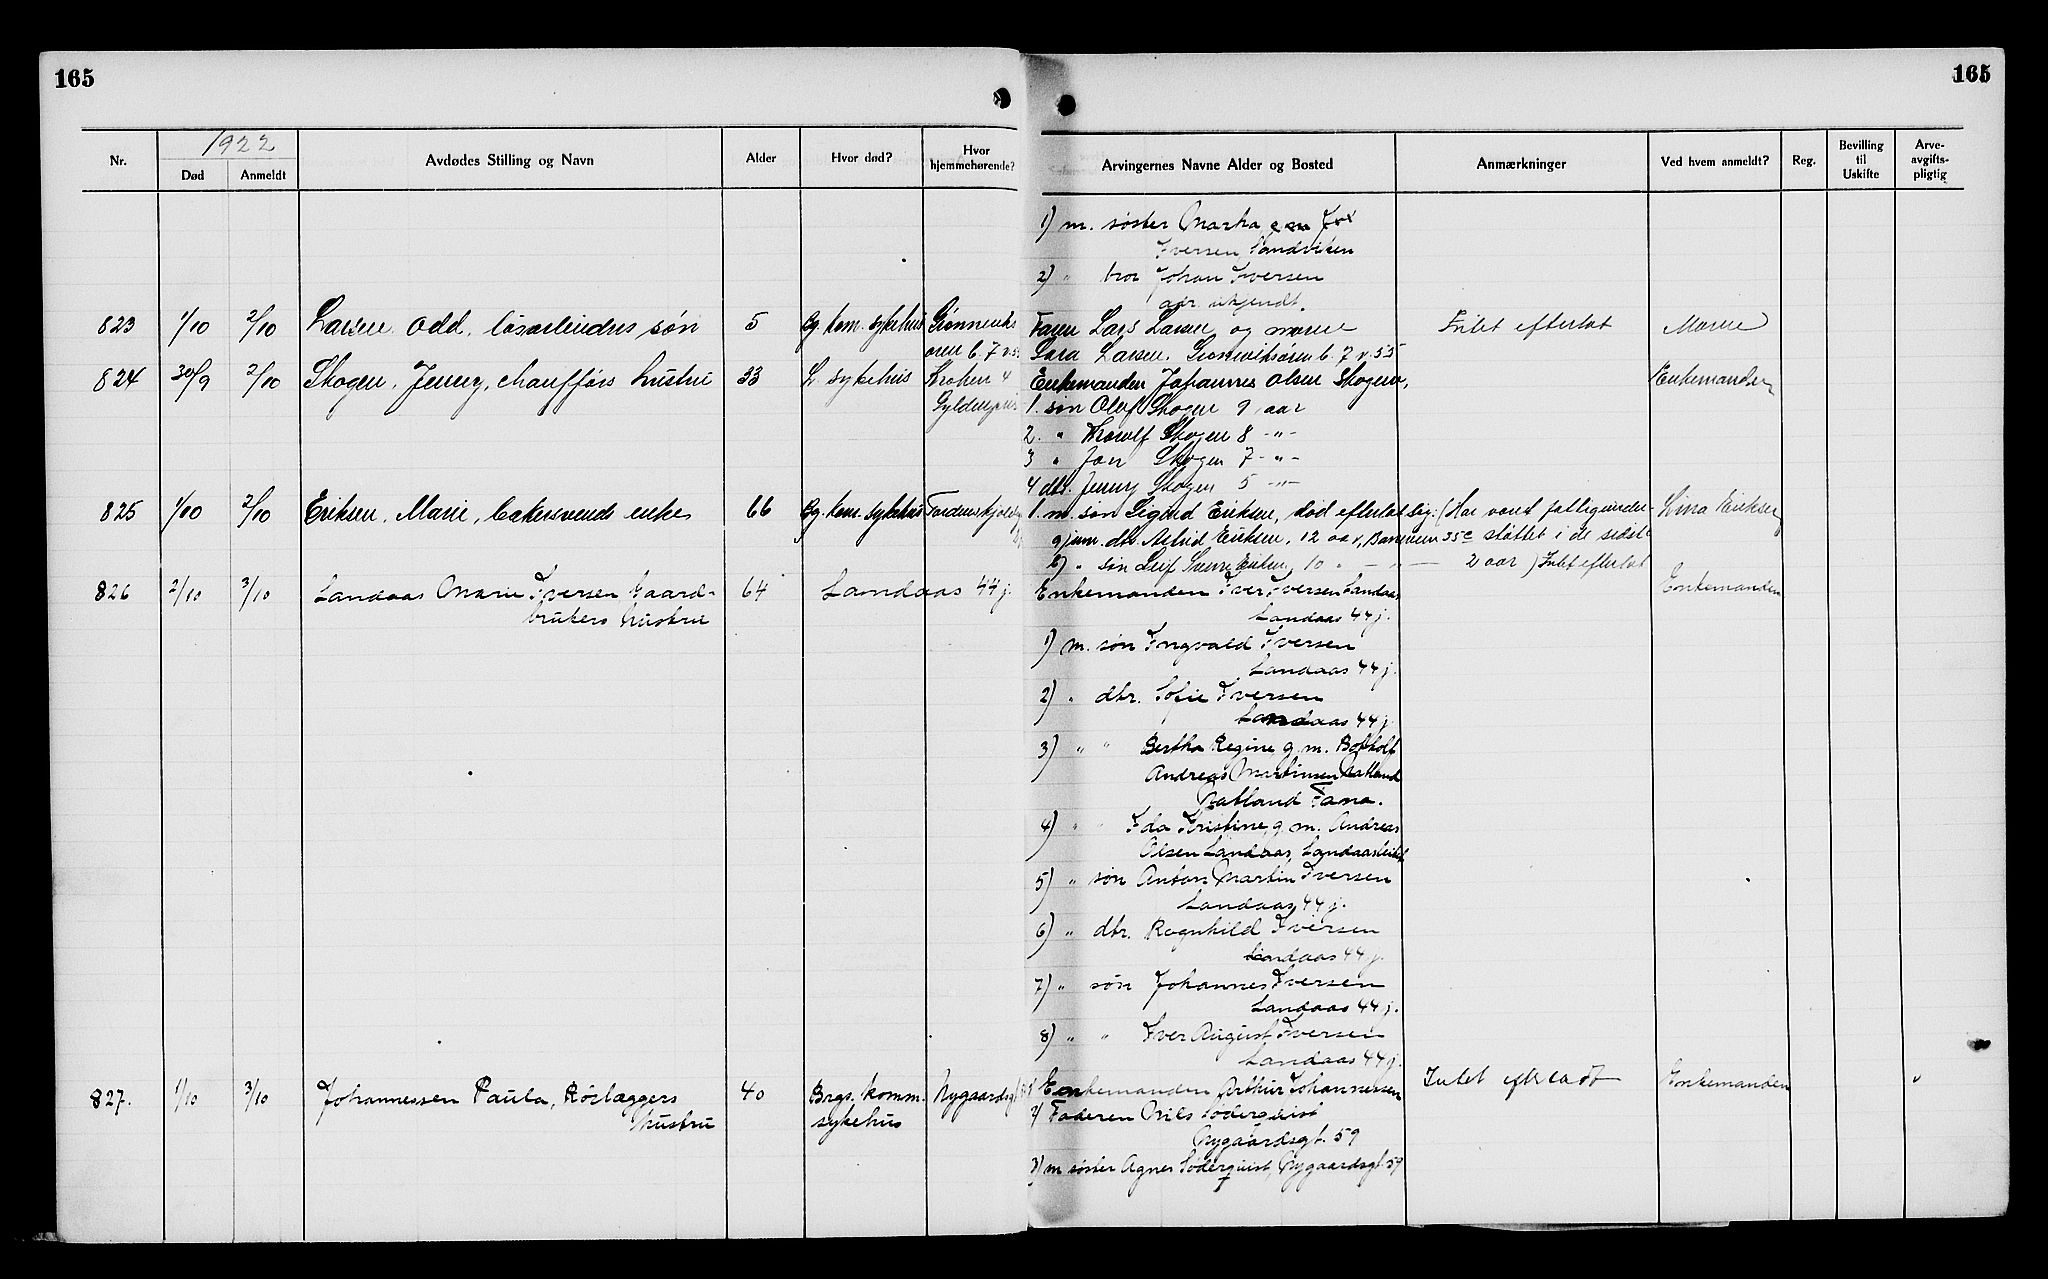 165
165
1922
Nr.
Død
Anmeldt
Avdødes Stilling og Navn
Alder
Hvor død?
Hvor hjemmehørende?
Arvingernes Navne Alder og Bosted
Anmærkninger
Ved hvem anmeldt?
Reg.
Bevilling til Uskifte
Arve-avgifts-pligtig
1) m. søster Marta
Iversen Sandviken
2) " bror Johan Iversen
adr. ukjendt.
823 1/10 2/10 Larsen, Odd, løsarbeiders søn 5 Bg. kom. sykehus Faren Lars Larsen og moren Intet efterlat Moren
Sara Larsen, b. 7 v. 55
824 30/9 2/10 Skogen, Jenny, chaufførs hustru 33 L. sykehus Krohen 4 Enkemanden Johannes Olsen Skogen, Enkemanden
1. søn Olaf Skogen 9 aar
2. " Thorolf Skogen 8 -"-
3 " Jan Skogen 7 -"-
4 dtr. Jenny Skogen 5 -"-
825 1/10 2/10 Eriksen, Marie, bakersvends enke 66 Bg. kom. sykehus 1. m. søn Sigurd Eriksen, død efterlat sig: (Har været fattigunder- Lina Eriksen
a) um. dtr. Astrid Eriksen, 12 aar, 35c støttet i de sidste
b) " søn Leif Eriksen 10 " — " — 2 aar) Intet efterlat
826 2/10 3/10 Landaas Marie Iversen Gaard- 64 Landaas 44 j. Enkemanden Iver Iversen Landaas Enkemanden
brukers hustru Landaas 44 j.
1) m. søn Ingvald Iversen
Landaas 44 j.
2) " dtr. Sofie Iversen
Landaas 44 j.
3) " " Bertha Regine g. m. Botholf
Andreas Martinsen Natland
Natland Fana.
4) " " Ida Kristine g. m. Andreas
Olsen Landaas,
5) " søn Anton Martin Iversen
Landaas 44 j.
6) " dtr. Ragnhild Iversen
Landaas 44 j.
7) " søn Johannes Iversen
Landaas 44 j.
8) " " Iver August Iversen
Landaas 44 j.
827. 1/10 3/10 Johannessen Paula, Rørlæggers 40 Brgs. komm. Nygaardsgt. 1) Enkemanden Arthur Johannessen Intet efterladt Enkemanden "
hustru sykehus 2) Faderen Nils Søderquist
Nygaardsgt. 59
3) m søster Agnes Søderquist, Nygaardsgt 59